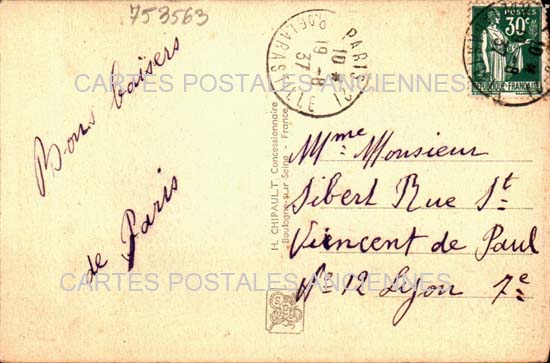 753563
CARTES POSTALES ANCIENNES
Bons baisers
de Paris
PARIS
19 -8
37
POSTES
30c
REPUBLIQUE FRANÇAISE
H. CHIPAULT, Concessionnaire
Boulogne-sur-Seine - France
Mme Monsieur
Sibert Rue St
Viencent de Paul
No 12 Lyon 7e
CARTES POSTALES ANCIENNES